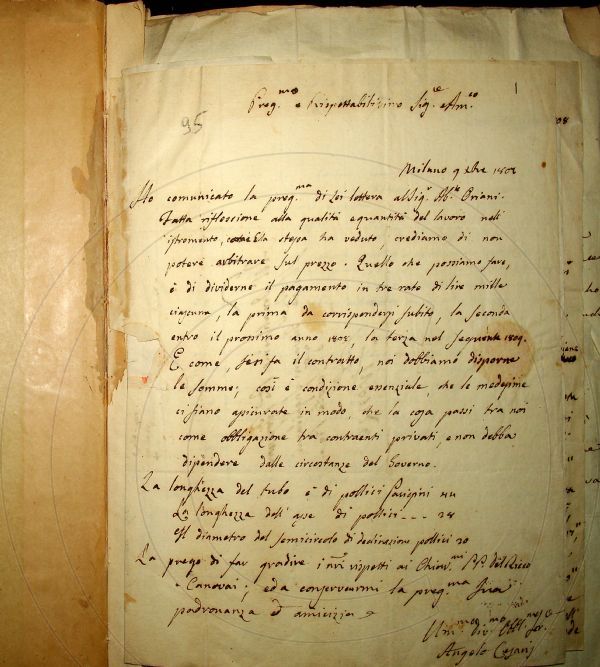 1
95
Preg.mo e Rispettabilissimo Sig.re Am.co
Milano 9 Xbre 1807
Ho comunicato la preg.ma di Lei lettera al Sig.r Ab.te Oriani.
Fatta riflessione alla qualità e quantità del lavoro nell'
istromento, come Ella stessa ha veduto, crediamo di non
potere arbitrare sul prezzo. Quello che possiamo fare,
è di dividerne il pagamento in tre rate di lire mille
ciascuna, la prima da corrispondersi subito, la seconda
entro il prossimo anno 1808, la terza nel seguente 1809.
E come se si fa il contratto, noi dobbiamo disporne
le somme; così è condizione essenziale, che le medesime
ci siano assicurate in modo, che la cosa passi tra noi
come obbligazione tra contraenti privati, e non debba
dipendere dalle circostanze del Governo.
La longhezza del tubo è di pollici Parigini 44
La longhezza dell'asse di pollici - - - 28
Il diametro del semicircolo di declinazione pollici 20
La prego di far gradire i nri rispetti ai Chiar.mi PP. Del Ricco
e Canovai; ed a conservarmi la preg.ma sua
padronanza ed amicizia
Um.mo Div.mo Obbl. Ser.
Angelo Cesaris